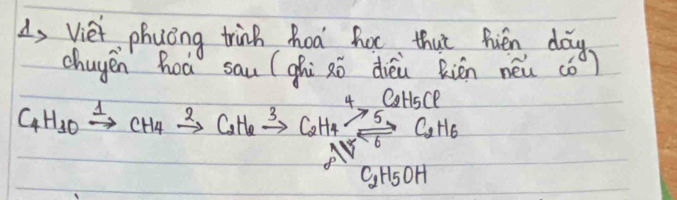 1, Viết phương trình hoá học thực hiện dãy
chuyển hoá sau (ghi rõ điều kiện nếu có)
4 C2H5Cl
C4H10 1→ CH4 2→ C2H2 3→ C2H4 5 ⇌ 6 C2H6
8 7
C2H5OH